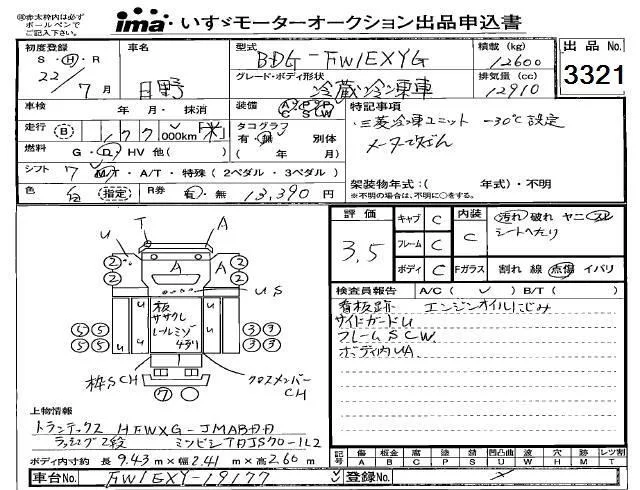 ※赤太枠内は必ず
ボールペンで
ご記入下さい。
ima いすゞモーターオークション出品申込書
初度登録 車名 型式 BDG-FW1EXYG 積載 (kg) 12600 出品No.
S・H・R 22/7月 日野 グレード・ボディ形状 冷蔵冷凍車 排気量 (cc) 12910 3321
車検 年 月・ 抹消 装備 AC PS PW SW 特記事項
走行 (B) ,000km「米」 タコグラフ 有・無 別体 ・三菱冷凍ユニット -30℃設定
燃料 G・D・HV 他( ) ( 年 月)
シフト 7 MT・A/T・特殊(2ペダル・3ペダル) 架装物年式:( 年式)・不明
色 白 (指定) R券 有・無 13,390円 ※不明の場合は、不明に○をする。
評価 3.5 キャブ C 内装 C 汚れ 破れ ヤニ スレ
シートへたり
フレーム C
ボディ C Fガラス 割れ 線 点傷 イバリ
検査員報告 A/C( ✓ ) B/T( )
看板跡 エンジンオイルにじみ
サイドガードU
フレームSCW
ボディ内UA
T A
U
② ② A A ② ②
US
U U 板 ササクレ レールミゾ U U
⑤⑤ ③③
⑤⑤ ③③
枠SCH クロスメンバーCH
⑦
上物情報
トランテックス HFWXG-JMABDD
ラッシング2段 ミツビシ
ボディ内寸約 長 9.43m×幅 2.41m×高 2.60m
記号 傷 A 板金 B 腐 C 塗 P 補 S 錆 凹凸曲 U 波 W 穴 H 跡 M レツ割 T
車台No. FW1EXY-19177 登録No.